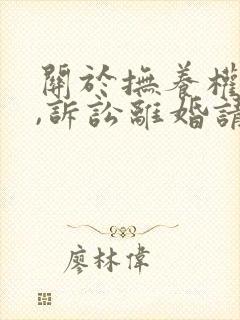 關於撫養權
,訴訟離婚請
廖林偉